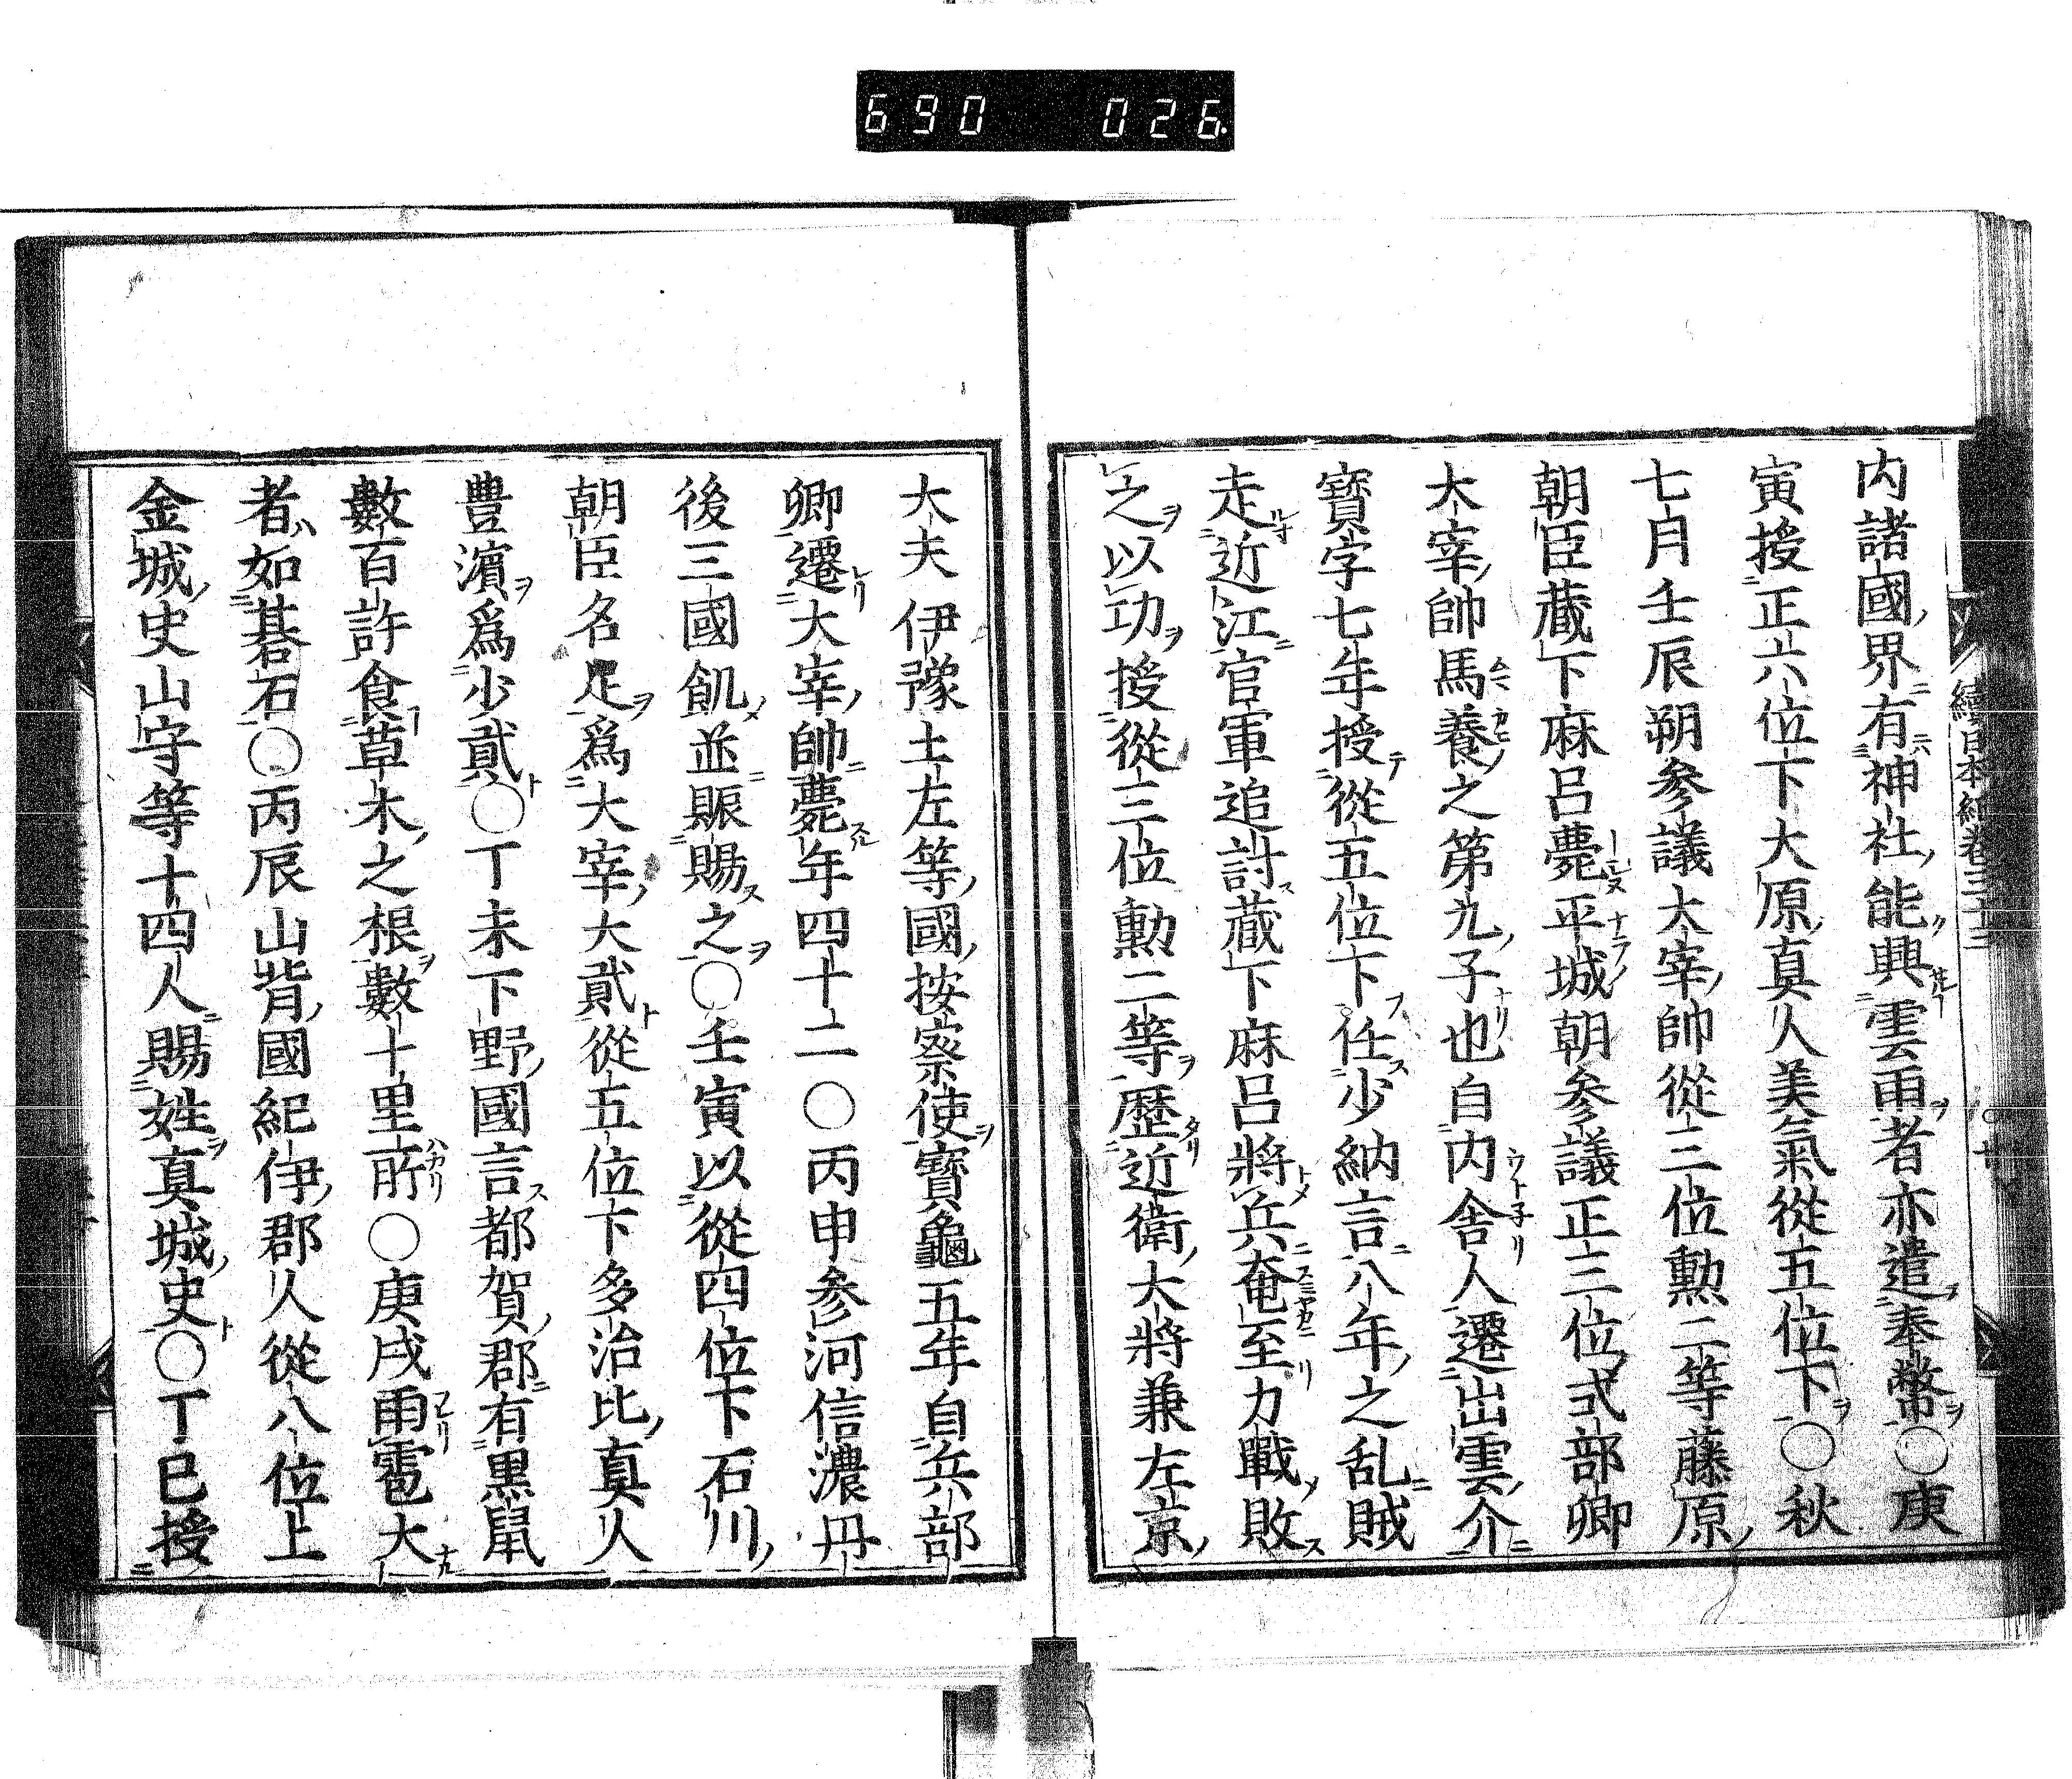 690 026
續日本紀卷三十三
内諸國界有神社能興雲雨者亦遣奉幣○庚
寅授正六位下大原真人美氣從五位下○秋
七月壬辰朔參議大宰帥從三位勳二等藤原
朝臣藏下麻呂薨平城朝參議正三位式部卿
大宰帥馬養之第九子也自内舍人遷出雲介
寶字七年授從五位下任少納言八年之乱賊
走近江官軍追討藏下麻呂將兵奄至力戰敗
之以功授從三位勳二等歷近衛大將兼左京
大夫伊豫土左等國按察使寶龜五年自兵部
卿遷大宰帥薨年四十二○丙申參河信濃丹
後三國飢並賑賜之○壬寅以從四位下石川
朝臣名足爲大宰大貳從五位下多治比真人
豊濱爲少貳○丁未下野國言都賀郡有黒鼠
數百許食草木之根數十里所○庚戌雨雹大
者如碁石○丙辰山背國紀伊郡人從八位上
金城史山守等十四人賜姓真城史○丁巳授